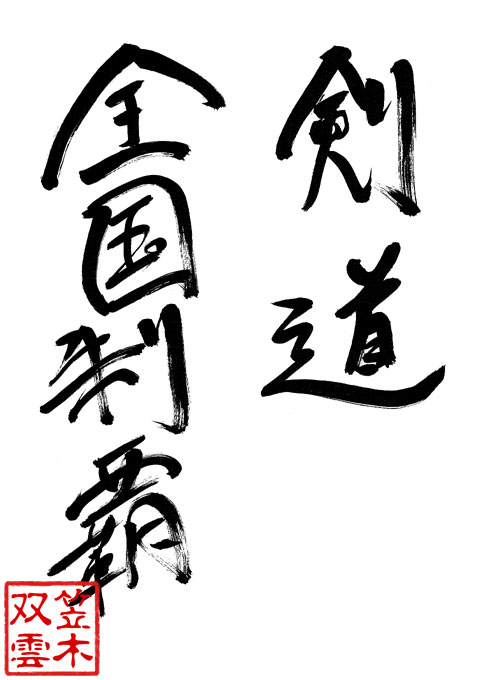 剣道
全国制覇
笠木
双雲